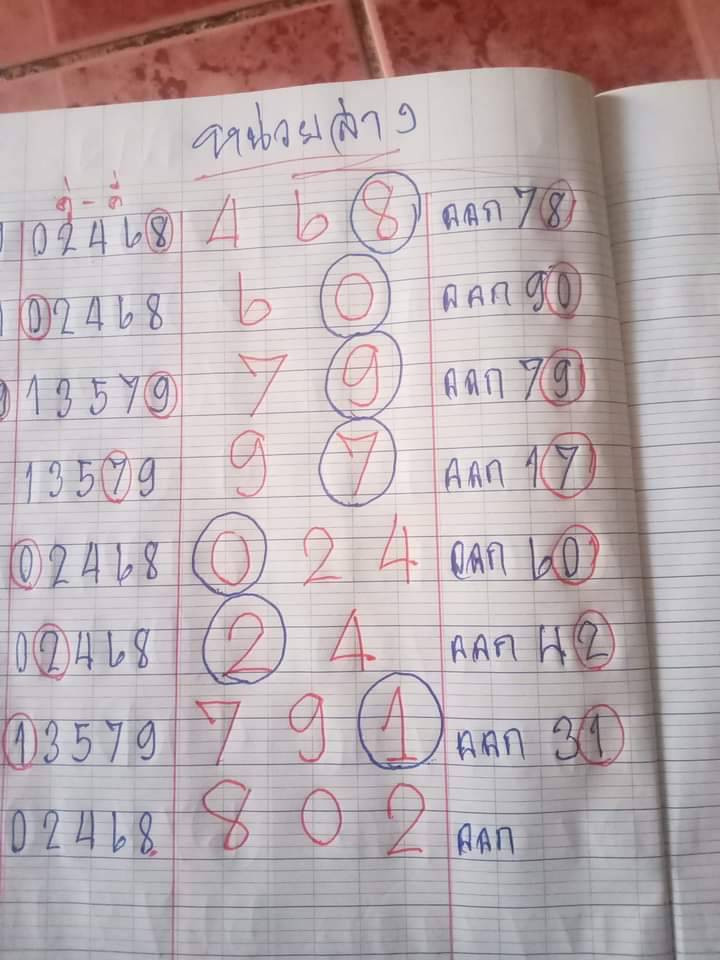 หน่วยล่าง
คู่ - คี่
02468 4 6 8 ออก 78
02468 6 0 ออก 90
13579 7 9 ออก 79
13579 9 7 ออก 17
02468 0 2 4 ออก 60
02468 2 4 ออก 42
13579 7 9 1 ออก 31
02468 8 0 2 ออก